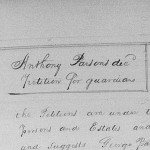 Anthony Parsons dec^d
Petition for guardian
The Petitions are under t
Persons and Estates and
and Suggests